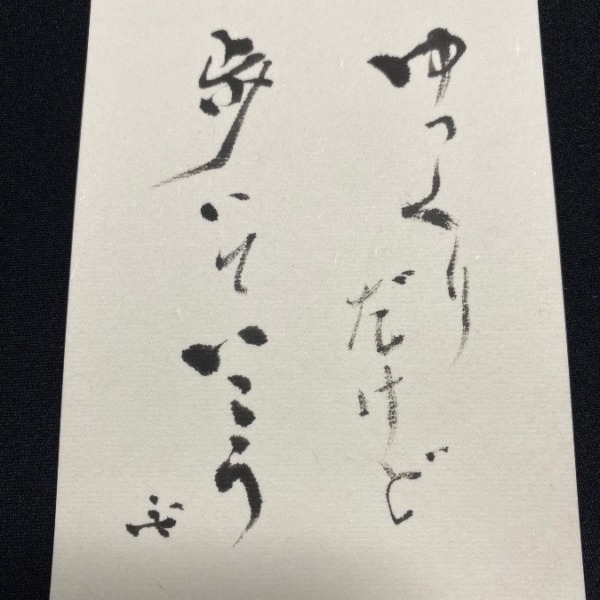 ゆっくりだけど
歩いていこう